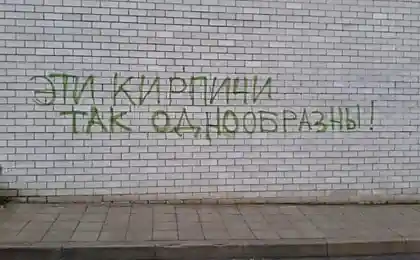 ЭТИ КИРПИЧИ
ТАК ОДНООБРАЗНЫ!